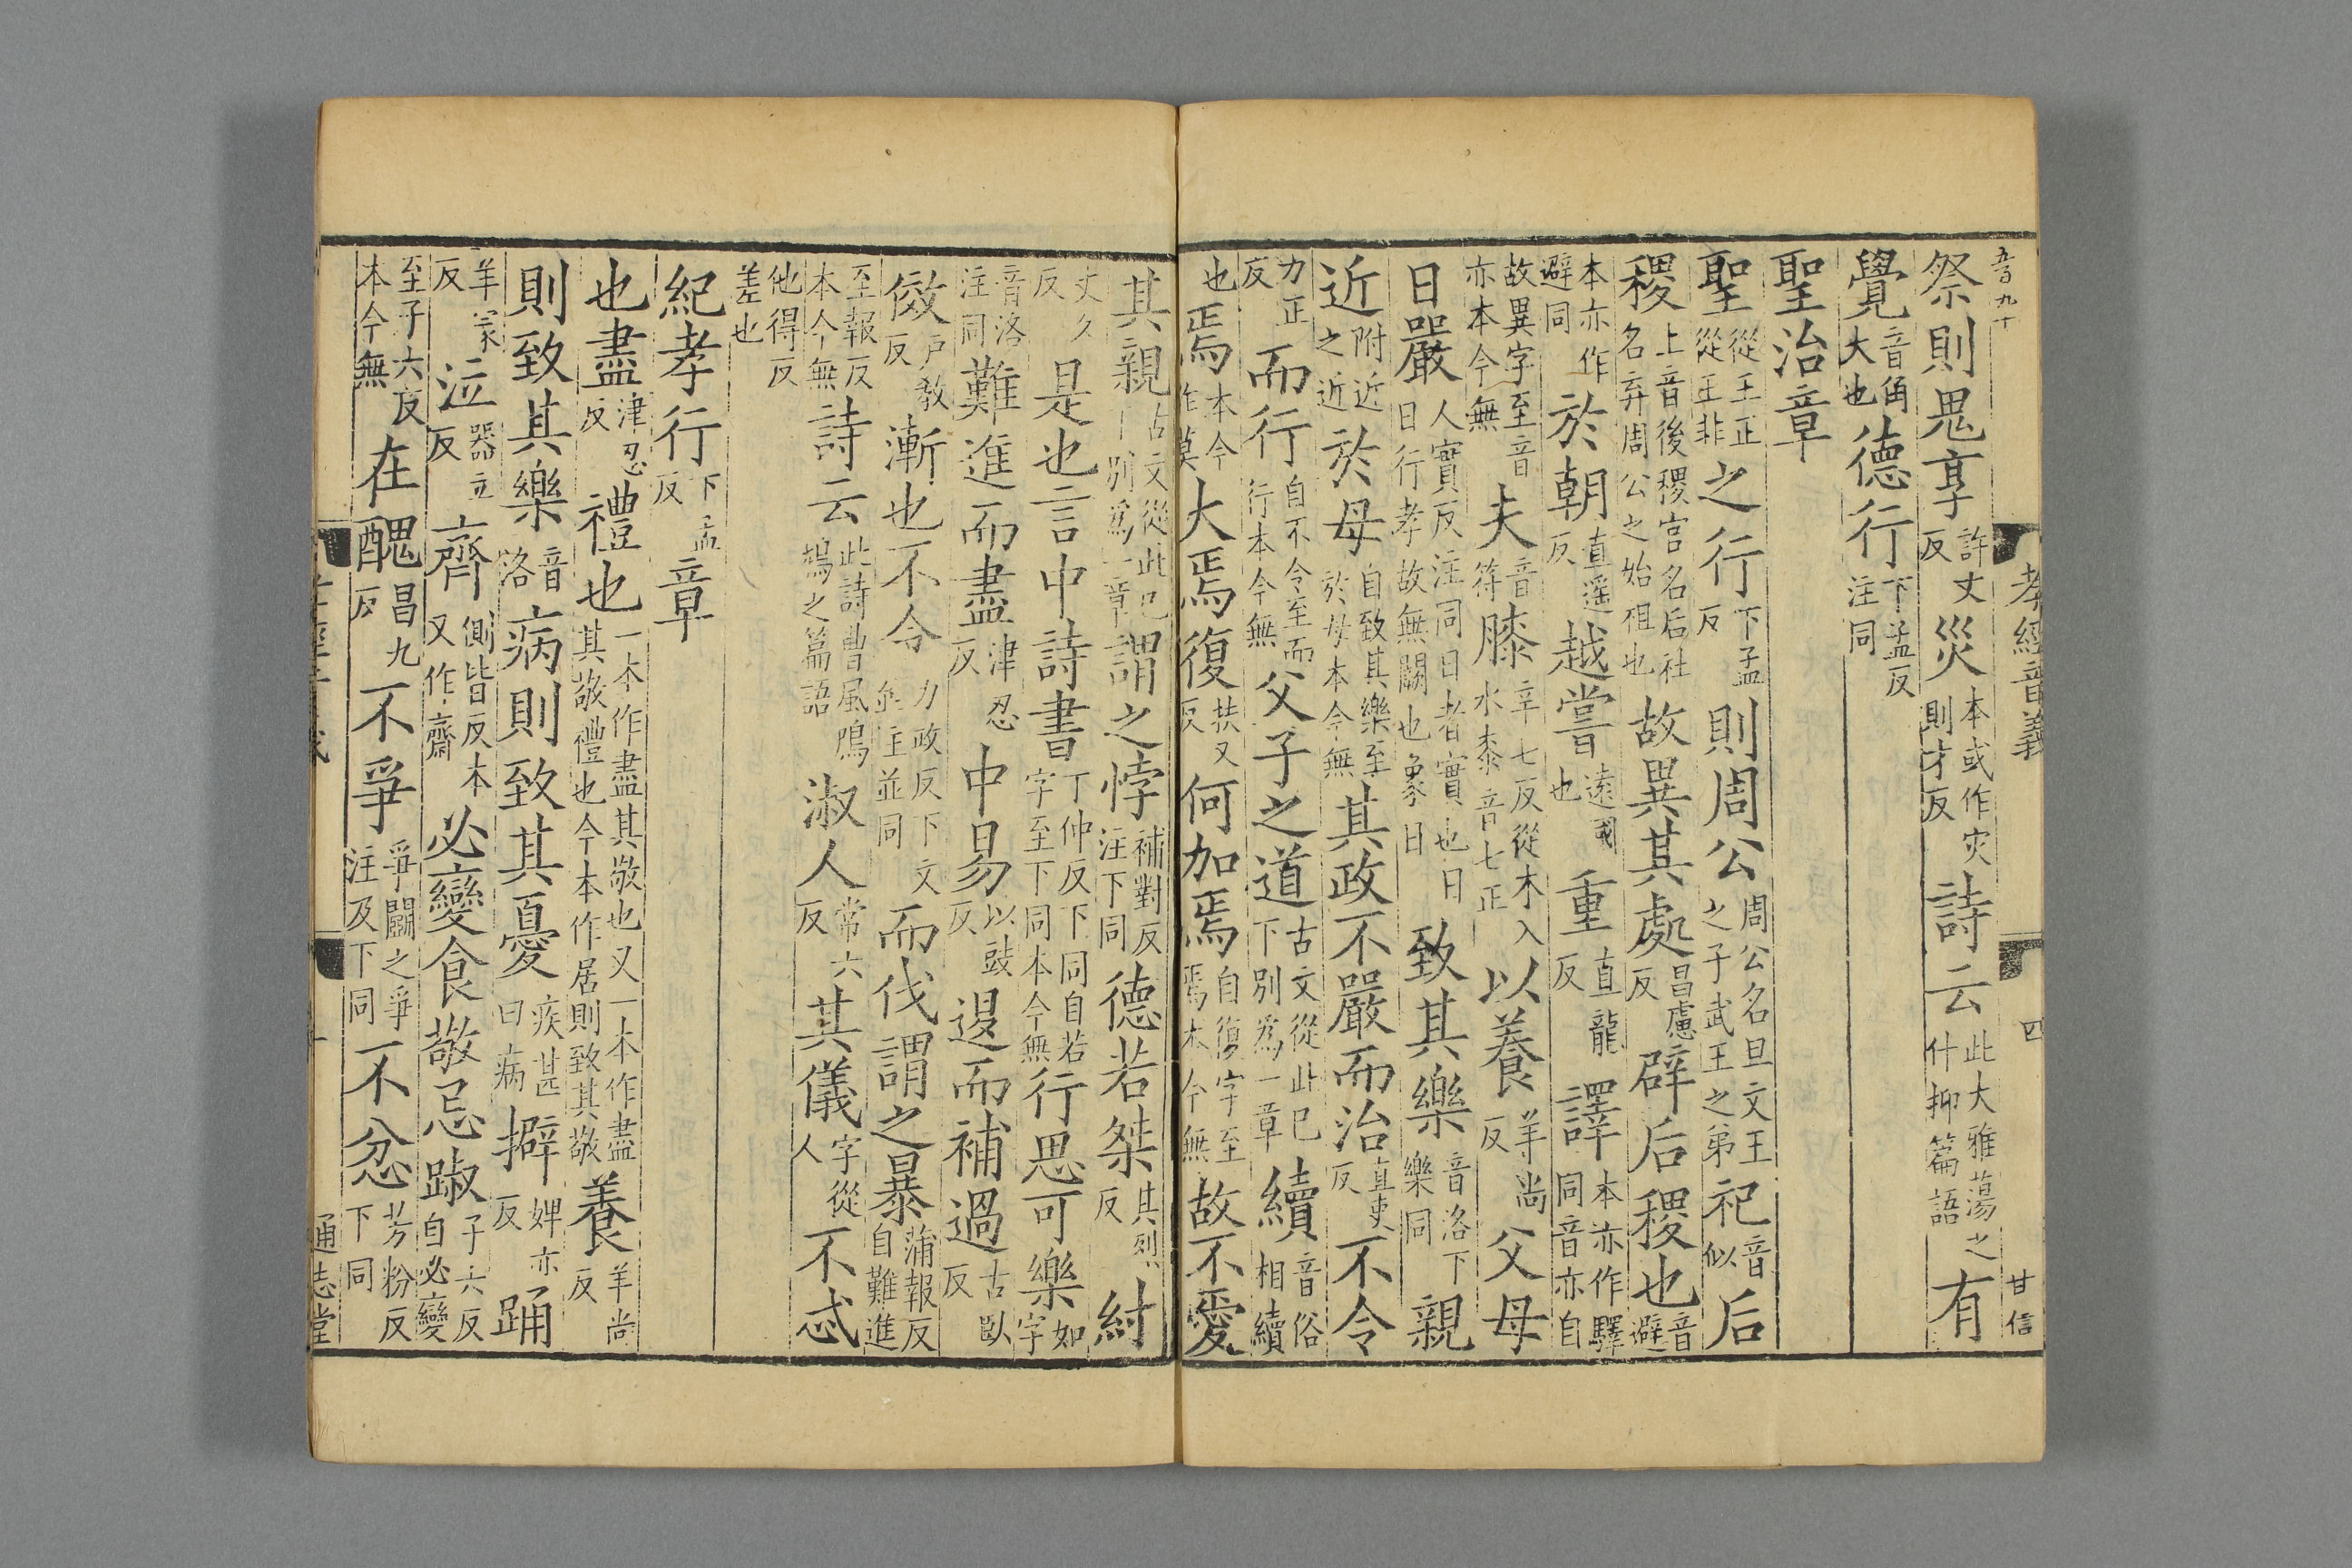 五百九十
孝經音義
四
甘信
祭則鬼享許丈反災本或作灾則才反詩云此大雅蕩之什抑篇語有
覺音角大也德行下孟反注同
聖治章
聖從王正從王非之行下孟反則周公周公名旦文王之子武王之弟祀音似后
稷上音後稷官名后社名弃周公之始祖也故異其處昌慮反辟后稷也音避
本亦作避同於朝直遥反越嘗遠國也重直龍反譯本亦作驛同音亦自
故異字至音亦本今無夫音符膝辛七反從木入水桼音七正以養羊尚反父母
日嚴人實反注同日者實也日日行孝故無闕也象日致其樂音洛下樂同親
近附近之近於母自致其樂至於母本今無其政不嚴而治直吏反不令
力正反而行自不令至而行本今無父子之道古文從此已下別爲一章續音俗相續
也焉本今作莫大焉復扶又反何加焉自復字至焉本今無故不愛
其親古文從此已下別爲一章謂之悖補對反注下同德若桀其列反紂
丈久反是也言中詩書丁仲反下同自若字至下同本今無行思可樂如字
音洛注同難進而盡津忍反中易以豉反退而補過古臥反
傚戶教反漸也不令力政反下文並注並同而伐謂之暴蒲報反自難進
至報反本今無詩云此詩曹風鳲鳩之篇語淑人常六反其儀字從人不忒
他得反差也
紀孝行下孟反章
也盡津忍反禮也一本作盡其敬也又一本作盡其敬禮也今本作居則致其敬養羊尚反
則致其樂音洛病則致其憂疾甚曰病擗婢亦反踊
羊冢反泣器立反齊側皆反本又作齋必變食敬忌踧子六反自必變
至子六反本今無在醜昌九反不爭爭鬭之爭注及下同不忿芳粉反下同
通志堂